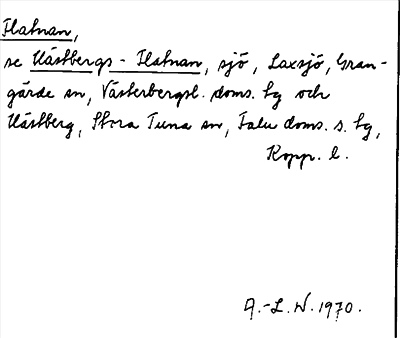 Flatnan,
se Håstbergs - Flatnan, sjö, Laxsjö, Gran-
gärde sn, Västerbergsl. doms. tg och
Håstberg, Stora Tuna sn, Falu doms. s. tg,
Kopp. l.
A.-L. N. 1970.